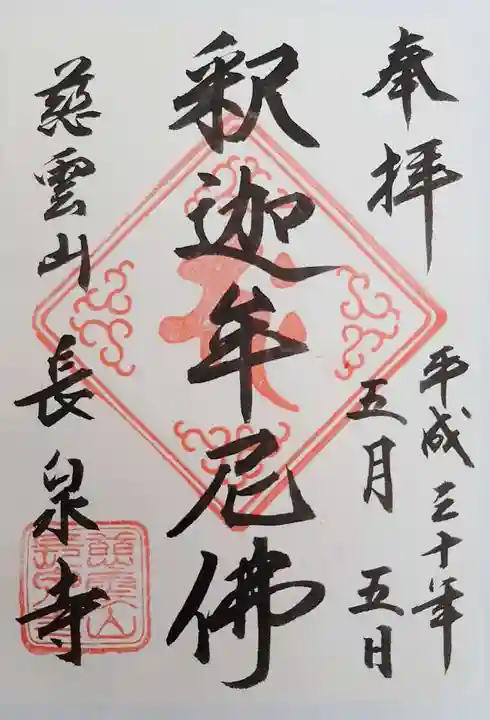 奉拝
平成三十年
五月五日
釈迦牟尼佛
慈雲山長泉寺